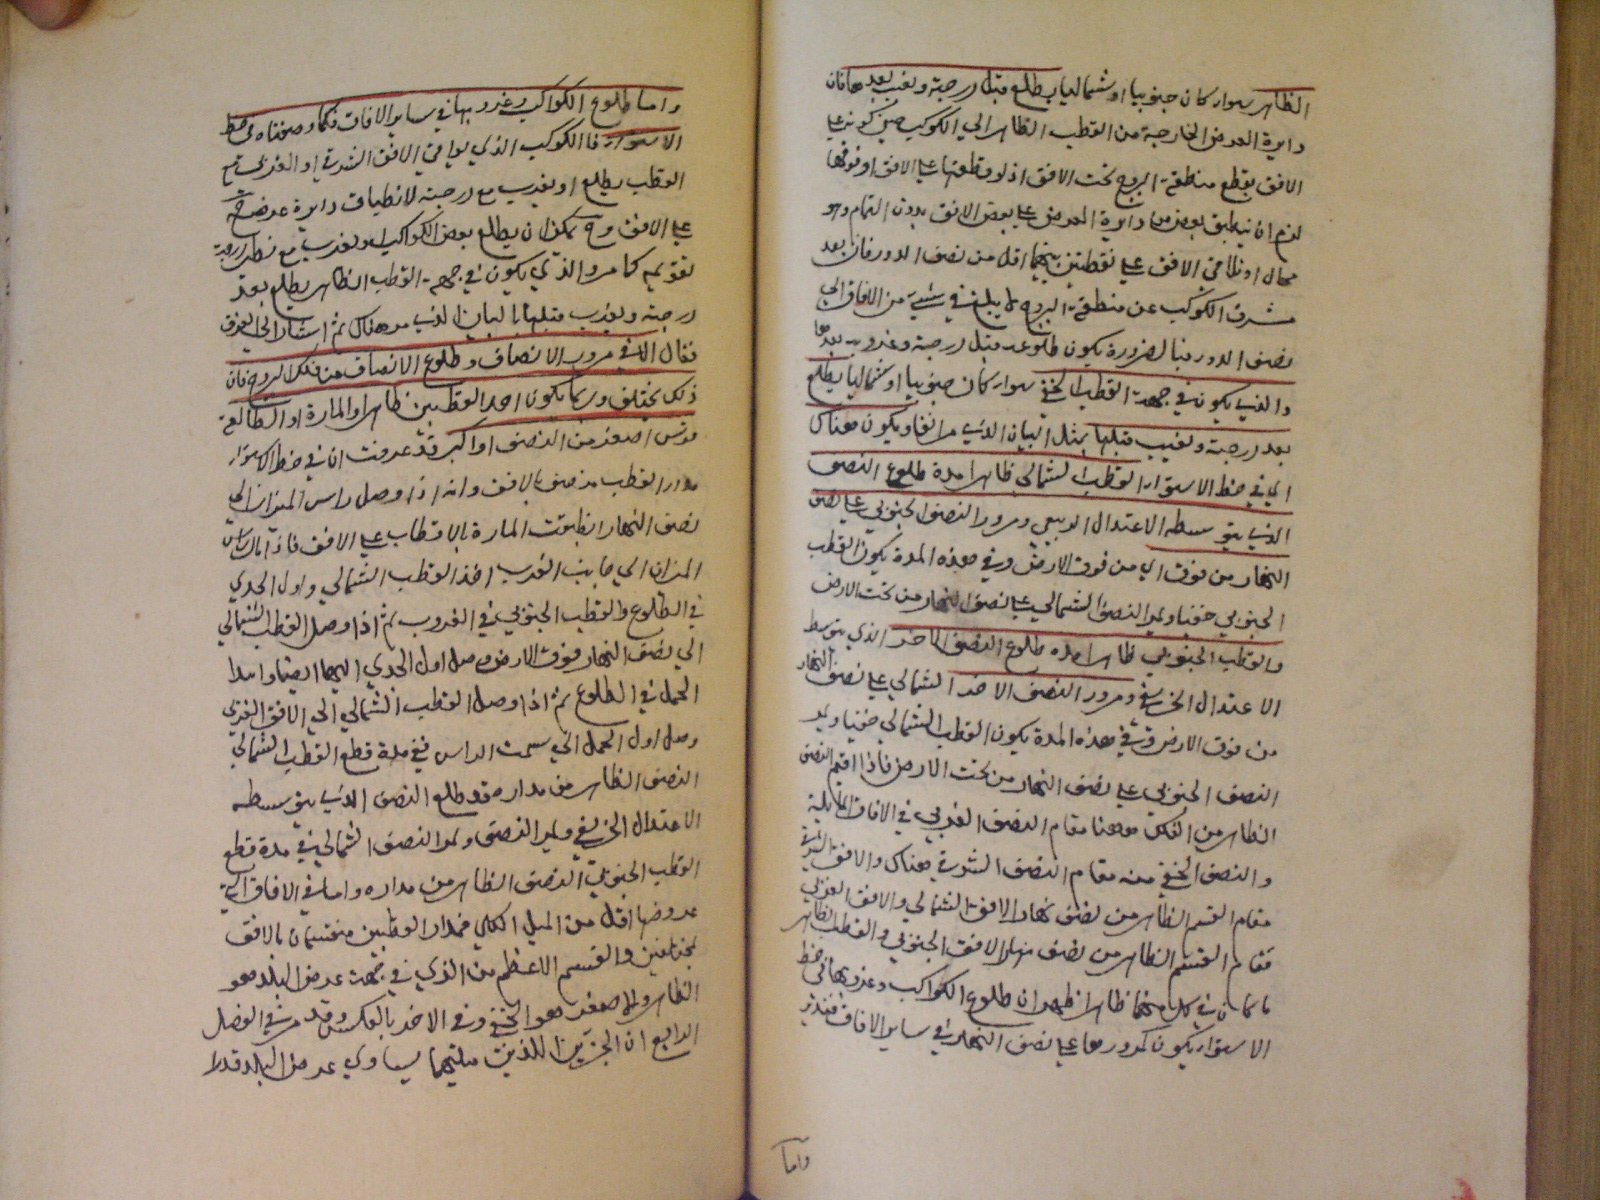 الظاهر سواء كان جنوبيا او شماليا يطلع قبل درجته ويغيب بعدها فان
دايرة العرض الخارجة من القطب الظاهر الي الكوكب حين كونه علي
الافق يقطع منطقة البروج تحت الافق اذ لو قطعتها علي الافق او فوقها
لزم ان ينطبق بعض من دايرة العرض علي بعض الافق بدون التمام وهو
محال او تقاطع الافق علي نقطتين بينهما اقل من نصف الدور فان بعد
الكوكب عن منطقة البروج لا يبلغ في شيء من الافاق الي
نصف الدور فبالضرورة يكون طلوعه قبل درجته وغروبه بعدها
والذي يكون في جهة القطب الخفي سواء كان جنوبيا او شماليا يطلع
بعد درجته ويغيب قبلها بمثل البيان الذي مر انفا ويكون هناك
اي في خط الاستواء القطب الشمالي ظاهرا مدة طلوع النصف
الذي يتوسطه الاعتدال الربيعي ومرور النصف الجنوبي علي نصف
النهار من فوق اي من فوق الارض وفي هذه المدة يكون القطب
الجنوبي خفيا ويمر النصف الشمالي علي نصف النهار من تحت الارض
والقطب الجنوبي ظاهرا مدة طلوع النصف الاخر الذي يتوسط
الاعتدال الخريفي ومرور النصف الاخر الشمالي علي نصف النهار
من فوق الارض وفي هذه المدة يكون القطب الشمالي خفيا ويمر
النصف الجنوبي علي نصف النهار من تحت الارض فاذا اقيم النصف
الظاهر من الفلك ههنا مقام النصف الغربي في الافاق المايلة
والنصف الخفي منه مقام النصف الشرقي هناك والافق الشرقي
مقام القسم الظاهر من نصف نهار الافق الشمالي والافق الغربي
مقام القسم الظاهر من نصف نهار الافق الجنوبي والقطب الظاهر
في كل منهما ظاهرا ظهر ان طلوع الكواكب وغروبها في خط
الاستواء يكون كمرورها علي نصف النهار في ساير الافاق فتدبر
واما
واما طلوع الكواكب وغروبها في ساير الافاق فكما وصفناه في خط
الاستواء فالكوكب الذي يوافي الافق الشرقي او الغربي مع
القطب يطلع او يغرب مع درجته لانطباق دايرة عرضه ح
علي الافق وح يمكن ان يطلع بعض الكواكب ويغرب مع نظير درجة
تقويمه كما مر والذي يكون في جهة القطب الظاهر يطلع بعد
درجته ويغرب قبلها بالبيان الذي مر هناك ثم اشار الي الفرق
فقال الا في مرور الانصاف وطلوع الانصاف من فلك البروج فان
ذلك يختلف وربما يكون احد القطبين ظاهرا والمارة او الطالعة
قوس اصغر من النصف او اكبر قد عرفت ان في خط الاستواء
مدار القطب منصف بالافق وانه اذا وصل راس الميزان الي
نصف النهار انطبقت المارة بالاقطاب علي الافق فاذا مال راس
الميزان الي جانب الغرب اخذ القطب الشمالي واول الجدي
في الطلوع والقطب الجنوبي في الغروب ثم اذا وصل القطب الشمالي
الي نصف النهار فوق الارض وصل اول الجدي اليها ايضا وابتدا
الحمل في الطلوع ثم اذا وصل القطب الشمالي الي الافق الغربي
وصل اول الحمل الي سمت الراس ففي مدة قطع القطب الشمالي
النصف الظاهر من مداره قد طلع النصف الذي يتوسطه
القطب الجنوبي النصف الظاهر من مداره واما في الافاق التي
عروضها اقل من الميل الكلي فمدار القطبين منقسمان بالافق
بمختلفين والقسم الاعظم من الذي في جهة عرض البلد هو
الظاهر والاصغر هو الخفي وفي الاخر بالعكس وقد مر في الفصل
الرابع ان الجزئين اللذين ميلهما يساوي عرض البلد